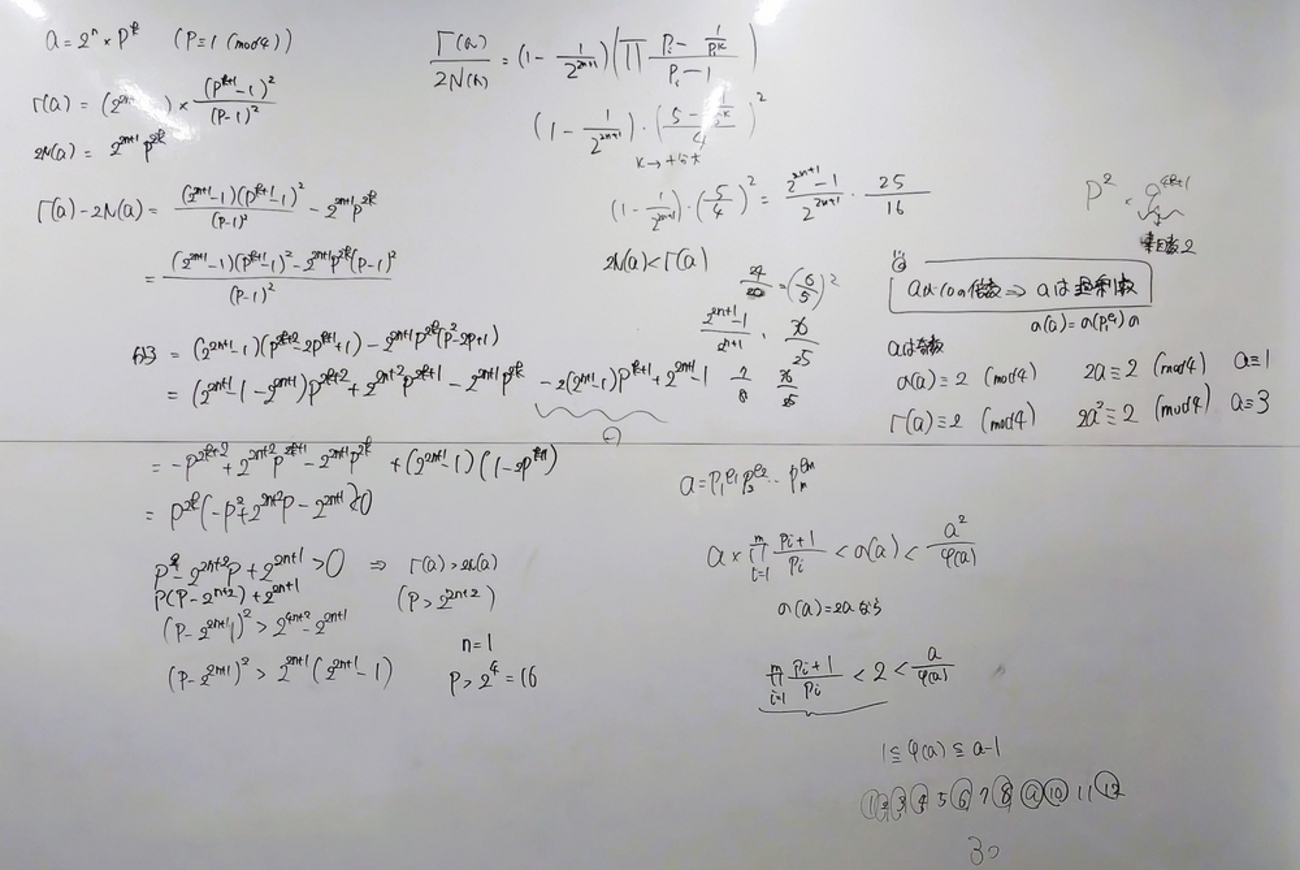 a = 2^n × p^k (p ≡ 1 (mod 4))
Γ(a) = (2^{2n ) × (p^{k+1} - 1)^2 / (p-1)^2
2N(a) = 2^{2n+1} p^{2k}
Γ(a) - 2N(a) = (2^{2n+1} - 1)(p^{k+1} - 1)^2 / (p-1)^2 - 2^{2n+1} p^{2k}
= (2^{2n+1} - 1)(p^{k+1} - 1)^2 - 2^{2n+1} p^{2k} (p-1)^2 / (p-1)^2
分子 = (2^{2n+1} - 1)(p^{2k+2} - 2p^{k+1} + 1) - 2^{2n+1} p^{2k} (p^2 - 2p + 1)
= (2^{2n+1} - 1 - 2^{2n+1}) p^{2k+2} + 2^{2n+2} p^{2k+1} - 2^{2n+1} p^{2k} - 2(2^{2n+1} - 1) p^{k+1} + 2^{2n+1} - 1
= -p^{2k+2} + 2^{2n+2} p^{2k+1} - 2^{2n+1} p^{2k} + (2^{2n+1} - 1)(1 - 2p^{k+1})
= p^{2k} (-p^2 + 2^{2n+2} p - 2^{2n+1}) > 0
p^2 - 2^{2n+2} p + 2^{2n+1} > 0 ⇒ Γ(a) > 2N(a)
p(p - 2^{2n+2}) + 2^{2n+1} (p > 2^{2n+2})
(p - 2^{2n+1})^2 > 2^{4n+2} - 2^{2n+1}
n = 1
(p - 2^{2n+1})^2 > 2^{2n+1} (2^{2n+1} - 1) p > 2^4 = 16
Γ(a) / 2N(a) = (1 - 1/2^{2n+1}) (∏ (p_i - 1/p_i^k) / (p_i - 1))
(1 - 1/2^{2n+1}) · ((5 - 1/5^k) / 4)^2
k → +
(1 - 1/2^{2n+1}) · (5/4)^2 = (2^{2n+1} - 1) / 2^{2n+1} · 25/16
2N(a) < Γ(a)
24/20 = (6/5)^2
(2^{2n+1} - 1) / 2^{2n+1} · 36/25
7/8 36/25
p^2 × q^{4k+1}
素因数2
aが10の倍数 ⇒ aは過剰数
σ(a) = σ(p_i^{e_i}) σ
aは奇数
σ(a) ≡ 2 (mod 4) 2a ≡ 2 (mod 4) a ≡ 1
Γ(a) ≡ 2 (mod 4) 2a^2 ≡ 2 (mod 4) a ≡ 3
a = p_1^{e_1} p_2^{e_2} ... p_m^{e_m}
a × ∏_{i=1}^{m} (p_i + 1)/p_i < σ(a) < a^2/φ(a)
σ(a) = 2a なら
∏_{i=1}^{m} (p_i + 1)/p_i < 2 < a/φ(a)
1 ≦ φ(a) ≦ a-1
① ② ③ ④ 5 ⑥ 7 ⑧ ⑨ ⑩ 11 ⑫
30